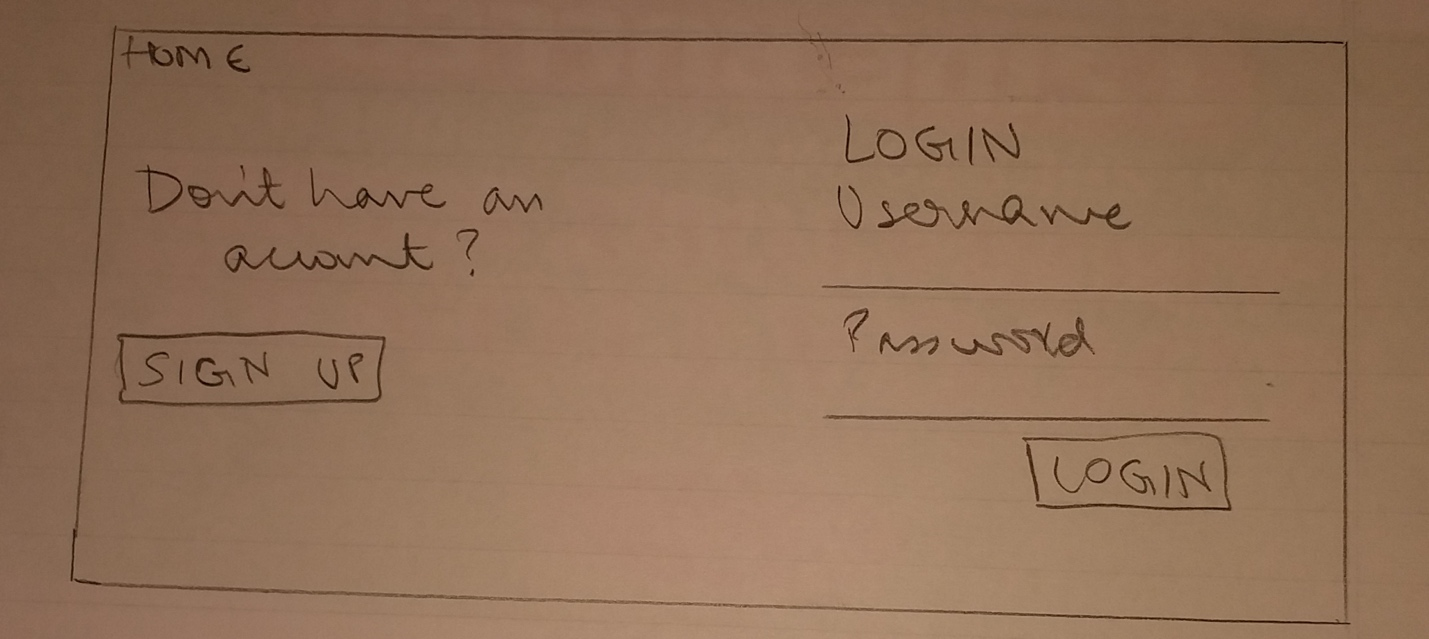 HOME
Don't have an
account?
SIGN UP
LOGIN
Username
Password
LOGIN